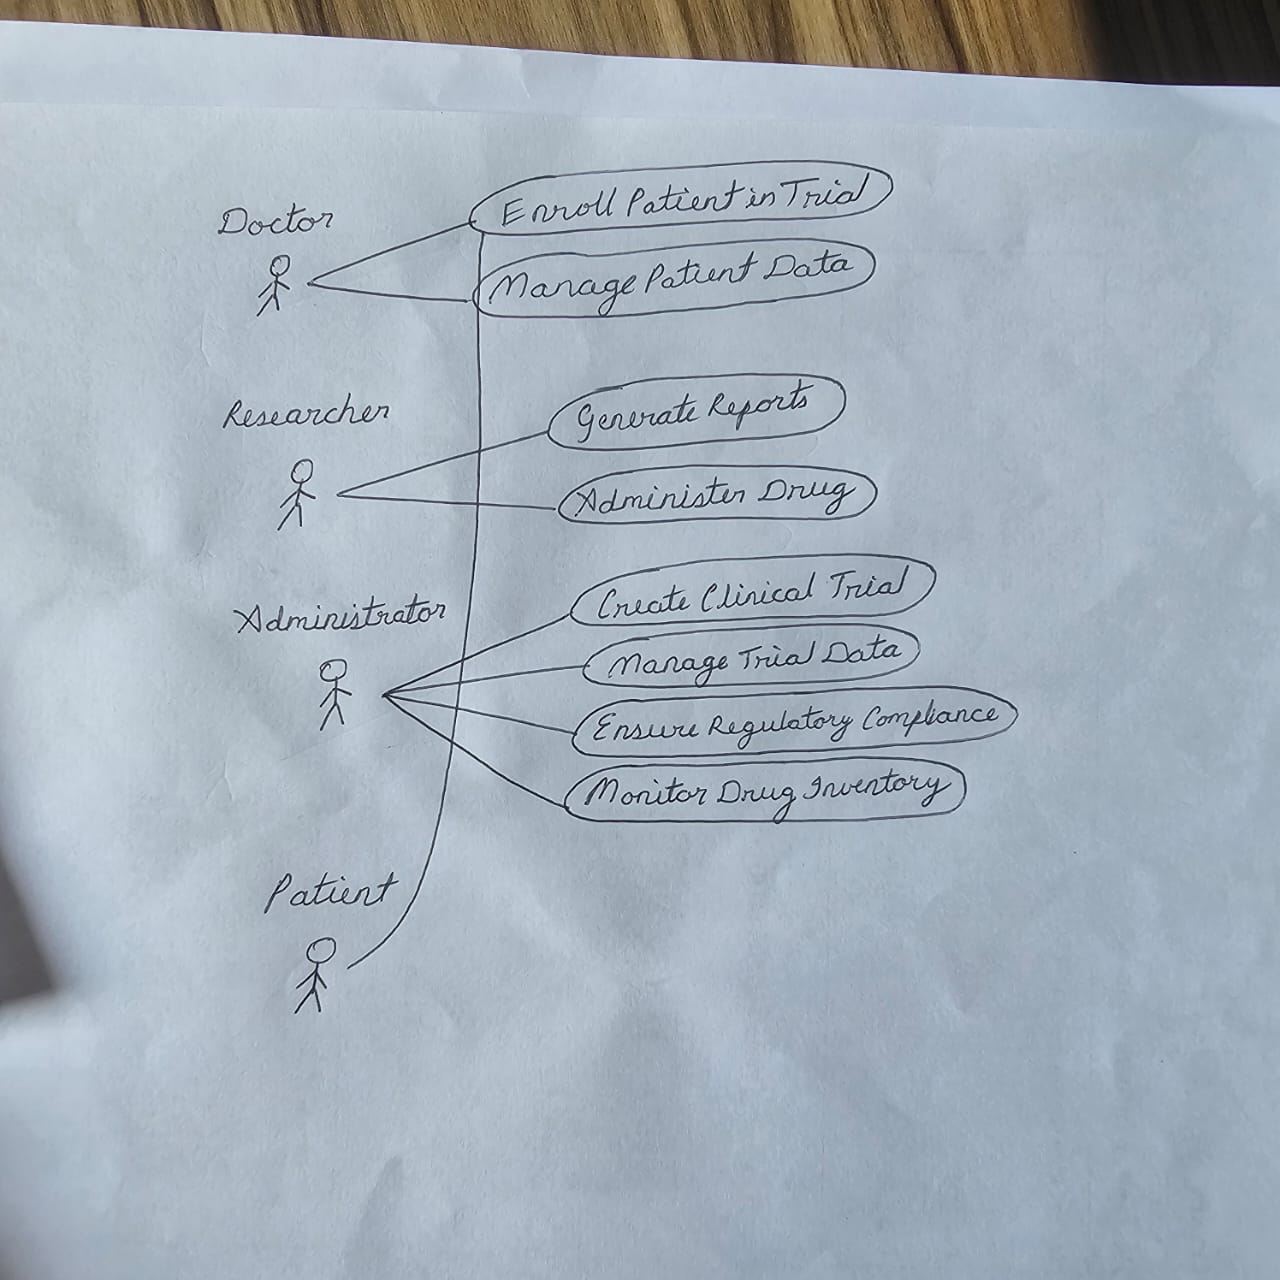 Doctor
Enroll Patient in Trial
Manage Patient Data
Researcher
Generate Reports
Administer Drug
Administrator
Create Clinical Trial
Manage Trial Data
Ensure Regulatory Compliance
Monitor Drug Inventory
Patient